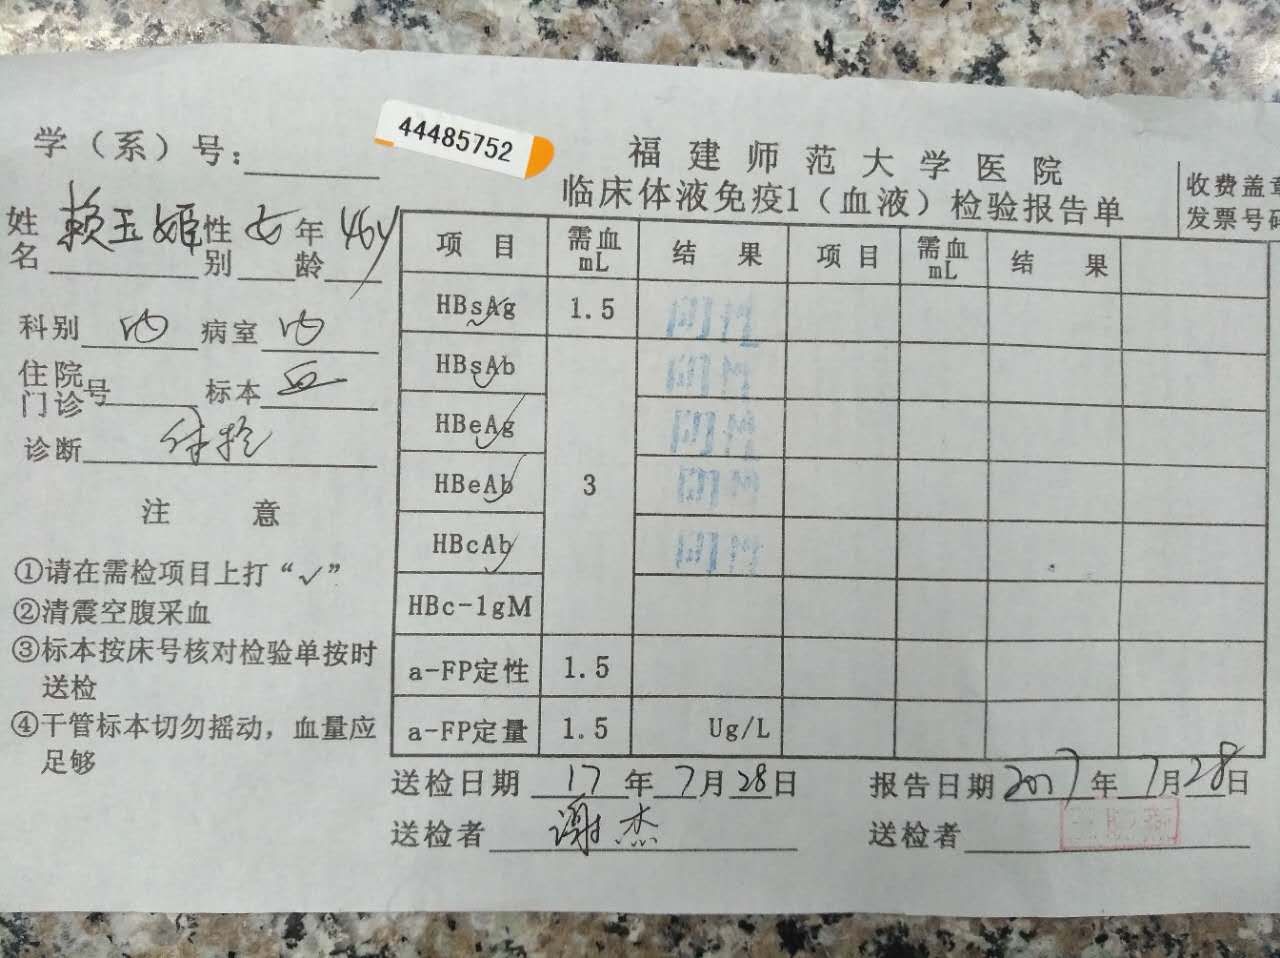 学（系）号：
44485752
福建师范大学医院
临床体液免疫1（血液）检验报告单
收费盖章
发票号码
姓名 赖玉姬 性别 女 年龄 46y
科别 内 病室 内
住院门诊号 标本 血
诊断 体检
注 意
①请在需检项目上打“✓”
②清震空腹采血
③标本按床号核对检验单按时
送检
④干管标本切勿摇动，血量应
足够
项 目 需血mL 结 果 项 目 需血mL 结 果
HBsAg ✓ 1.5
HBsAb ✓
HBeAg ✓
HBeAb ✓ 3
HBcAb ✓
HBc-1gM
a-FP定性 1.5
a-FP定量 1.5 Ug/L
送检日期 17年7月28日 报告日期 2017年7月28日
送检者 谢杰 送检者